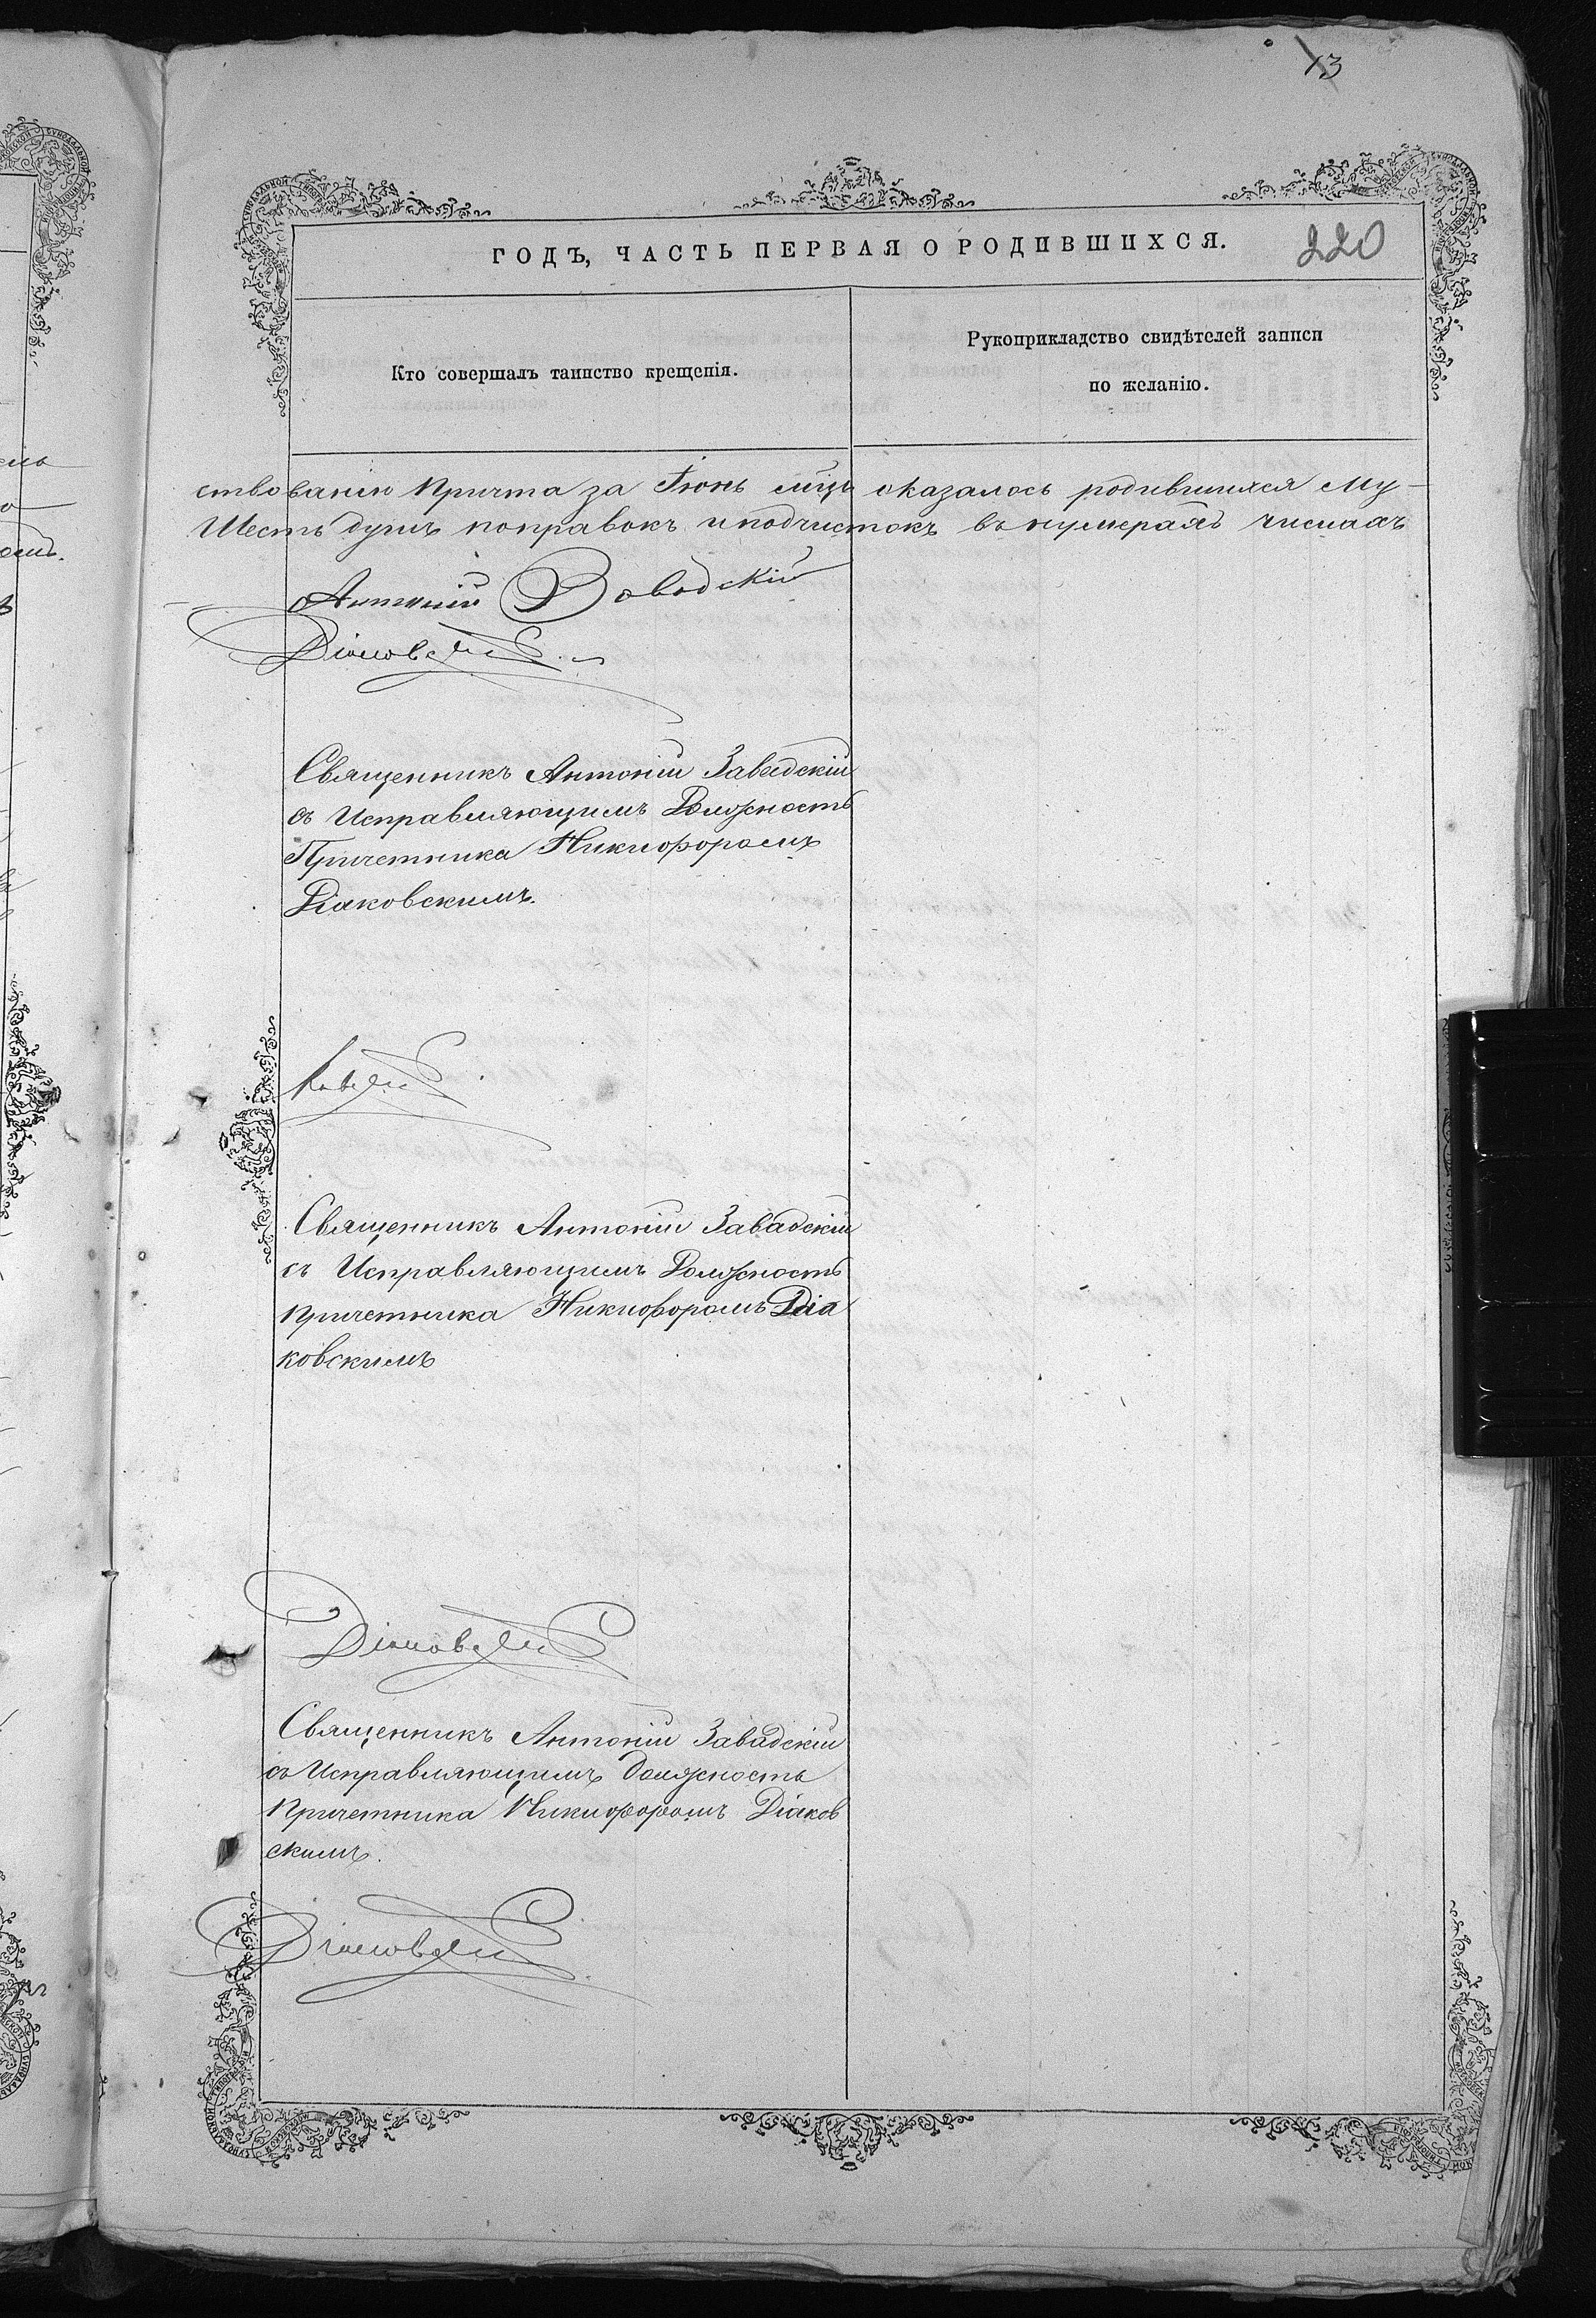 13
ГОДЪ, ЧАСТЬ ПЕРВАЯ О РОДИВШИХСЯ.
220
Кто совершалъ таинство крещенія.
Рукоприкладство свидѣтелей записи
по желанію.
ствованіи Причта за Іюнь мѣць оказалось родившихся му-
Шесть душъ поправокъ и подчистокъ въ нумерахъ числахъ
Антоній Заводскій
Діаковскій
Священникъ Антоній Завадскій
съ Исправляющимъ Должность
Причетника Никифоромъ
Діаковскимъ.
Священникъ Антоній Завадскій
съ Исправляющимъ Должность
Причетника Никифоромъ Діа
ковскимъ
Діаковскій
Священникъ Антоній Завадскій
съ Исправляющимъ должность
Причетника Никифоромъ Діаков
скимъ.
Діаковскій